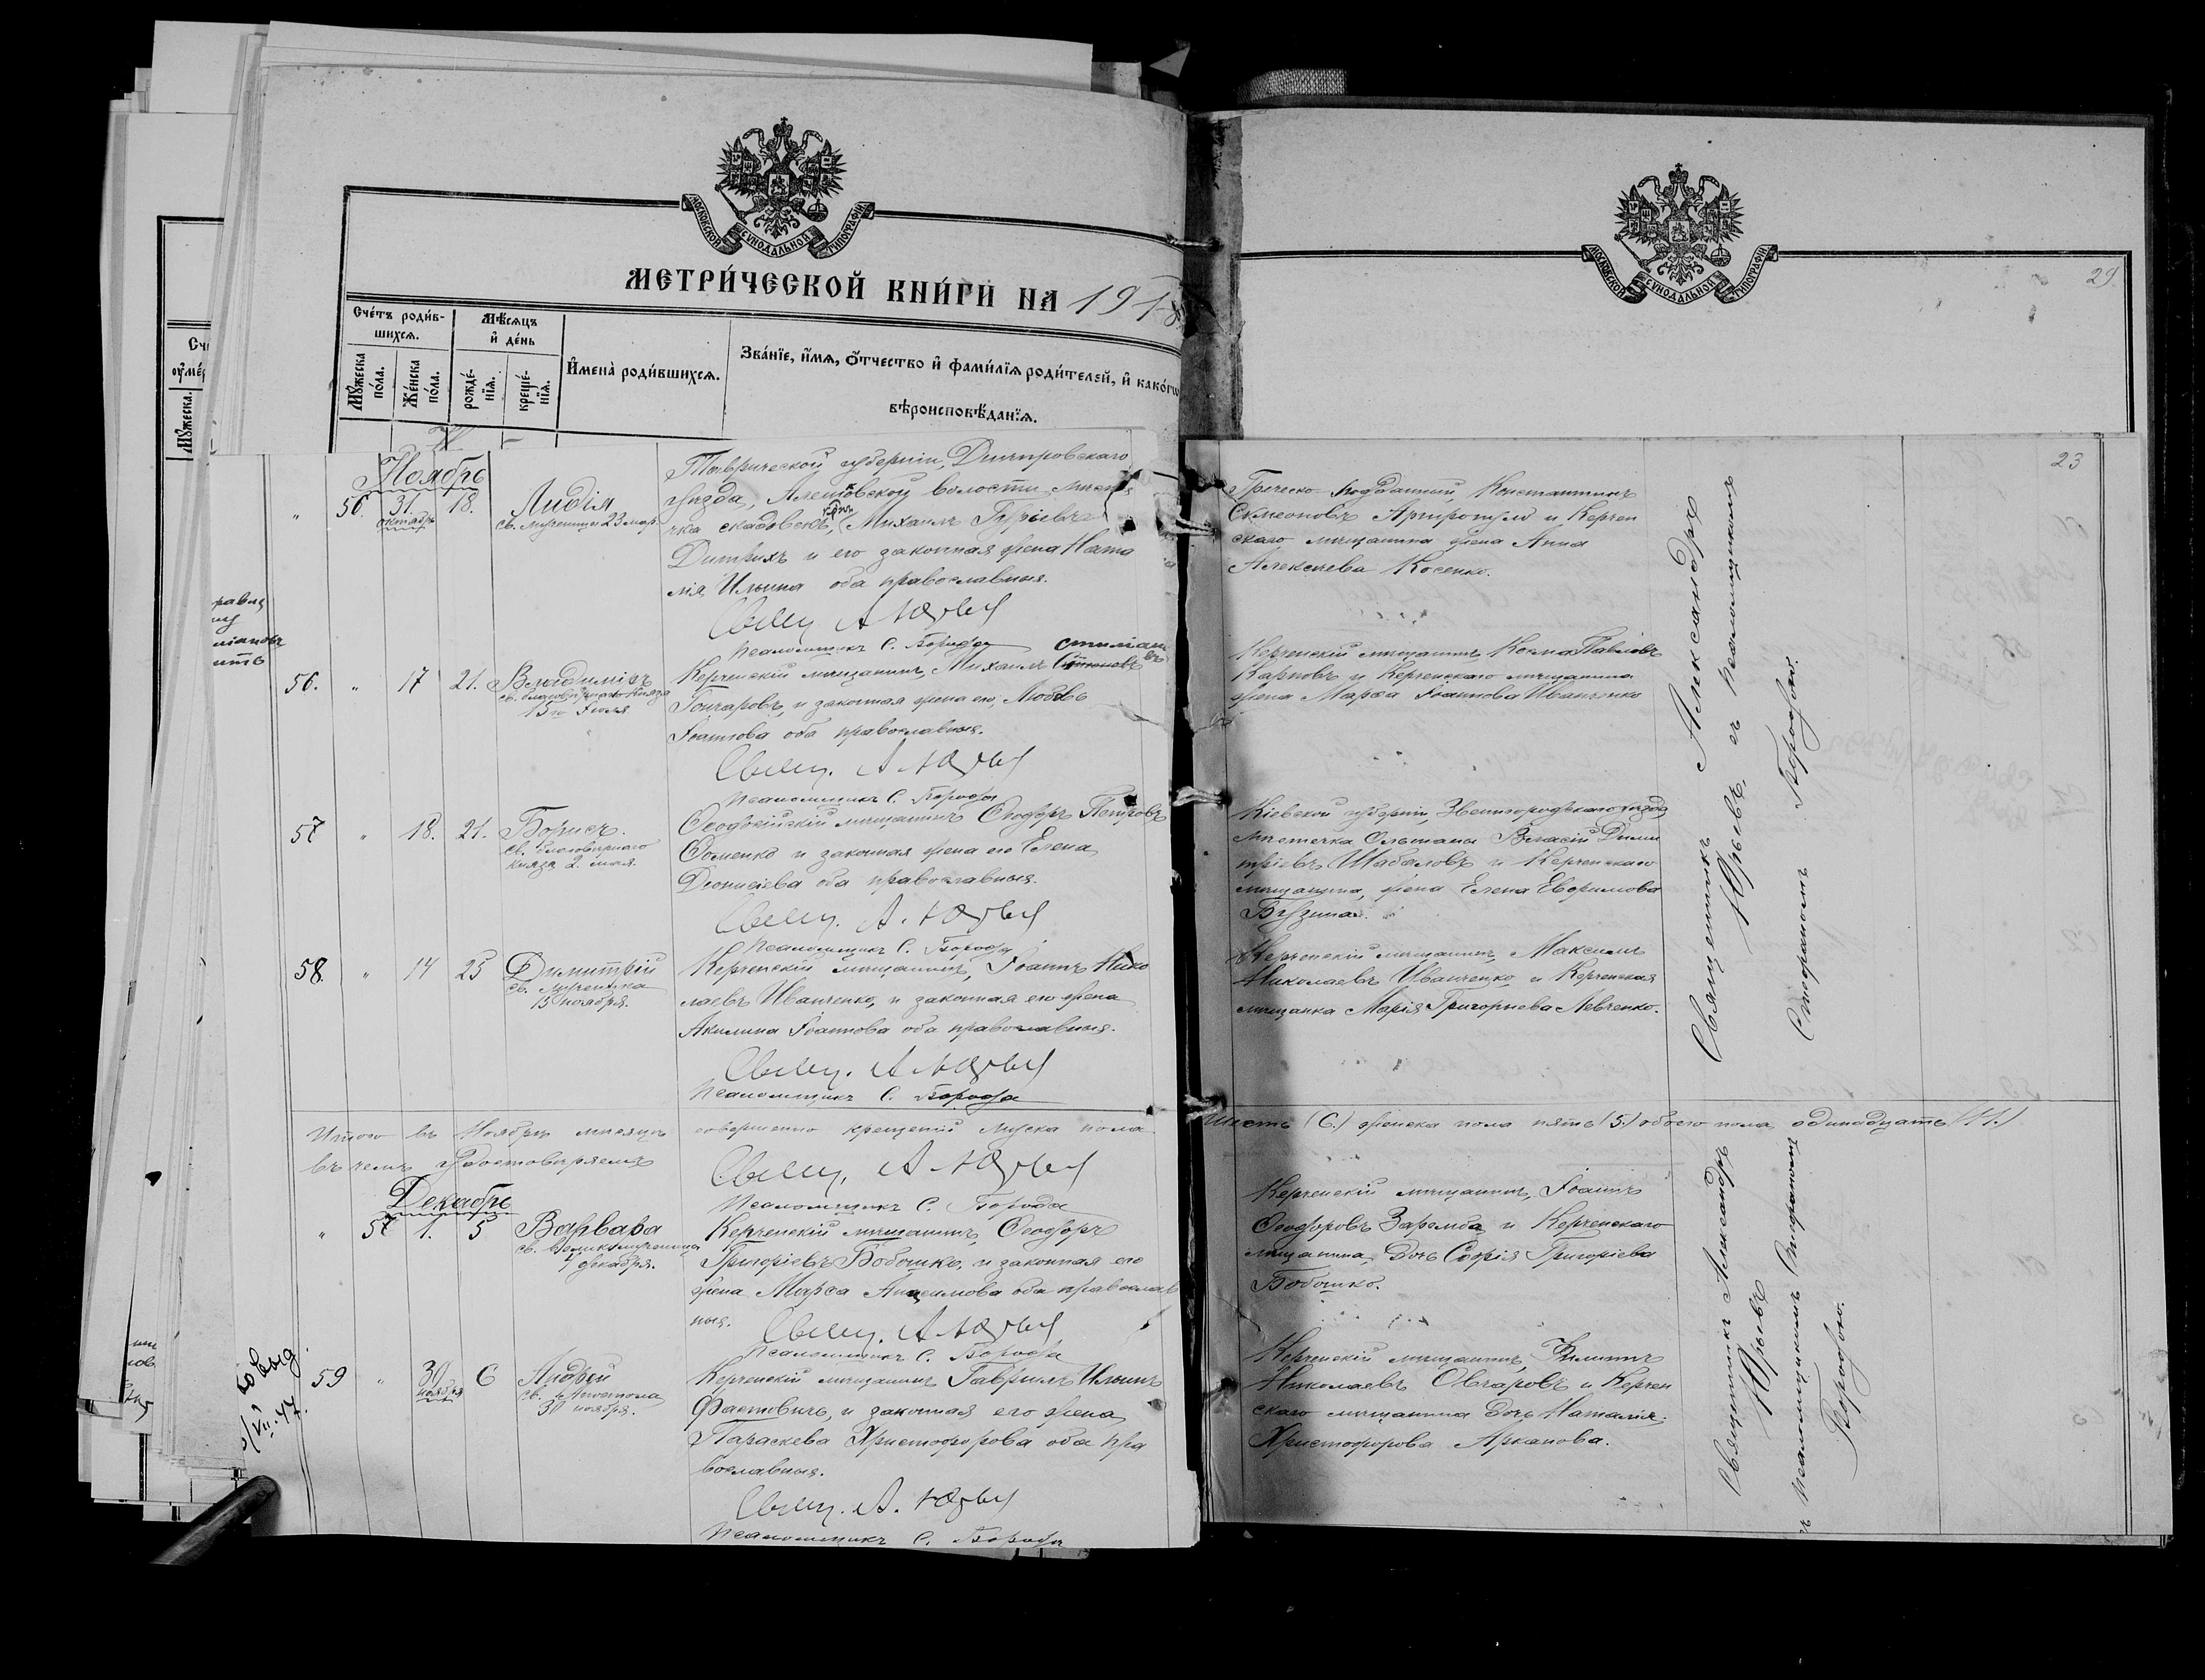 МОСКОВСКОЙ СѴНОДАЛЬНОЙ ТИПОГРАФІИ.
МЕТРИ́ЧЕСКОЙ КНИ́ГИ НА 1918
Сче́тъ роди́в-
шихсѧ.
Мѣ́сѧцъ
и҆ де́нь
Мꙋ́жеска
по́ла.
Же́нска
по́ла.
рожде́-
нїѧ.
креще́-
нїѧ.
И҆мена̀ роди́вшихсѧ.
Зва́нїе, и҆́мѧ, ѻ҆́тчество и҆ фами́лїѧ роди́телей, и҆ како́гѡ
вѣроисповѣ́данїѧ.
Ноябрь
„ 56. 31. 18.
октябрь
Лидія
св. мученицы 23 мар.
Таврической губерніи, Днѣпровскаго
уѣзда, Алешковской волости, мѣстеч
чка Скадовскъ, Михаилъ Гурьевъ
Дитрихъ и его законная жена Ната
лія Ильина оба православныя.
Свящ. А Юрьев
Псаломщикъ С. Борода
56. „ 17 21. Владиміръ
св. благовѣрнаго Князя
15го Іюля
Керченскій мѣщанинъ, Михаилъ
Гончаровъ, и законная жена его, Любовь
Іоаннова оба православныя.
Свящ. А Юрьев
Псаломщикъ С. Борода
57 „ 18. 21. Борисъ.
св. благовѣрнаго
князя 2. мая.
Ѳеодосійскій мѣщанинъ Ѳеодоръ Петровъ
Ѳоменко и законная жена его Елена
Діонисіева оба православныя.
Свящ. А. Юрьев
Псаломщикъ С. Борода
58. „ 14 25 Димитрій
св. мученика
15 ноября.
Керченскій мѣщанинъ, Іоаннъ Нико
лаевъ Иванченко, и законная его жена
Акилина Іоаннова оба православныя.
Свящ. А Юрьев
Псаломщикъ С. Борода
Итого въ Ноябрѣ мѣсяцѣ совершенно крещеній мужска пола
въ чемъ удостовѣряемъ
Свящ. А Юрьев
Псаломщикъ С. Борода
Декабрь
„ 57 1. 5 Варвара
св. Великомученица
4 декабря.
Керченскій мѣщанинъ, Ѳеодоръ
Григоріевъ Бобошко, и законная его
жена Марѳа Анисимова оба православ
ныя.
Свящ. А Юрьев
Псаломщикъ С. Борода
59 „ 30 6 Андрей
ноября
св. Апостола
30 ноября.
Керченскій мѣщанинъ Гавріилъ Ильинъ
Фастовичъ, и законная его жена
Параскева Христофорова оба пра
вославныя.
Свящ. А. Юрьев
Псаломщикъ С. Борода
МОСКОВСКОЙ СѴНОДАЛЬНОЙ ТИПОГРАФІИ.
29.
23
Греческо-подданный, Константинъ
Симеоновъ Аргиропуло и Керчен
скаго мѣщанина жена Анна
Алексѣева Косенко.
Керченскій мѣщанинъ, Косма Павловъ
Карповъ и Керченскаго мѣщанина
жена Марѳа Іоаннова Иванченко
Кіевской губерніи, Звенигородскаго уѣзда,
мѣстечка Ольшаны Власій Дими
тріевъ Шабаловъ и Керченскаго
мѣщанина, жена Елена Евфимова
Бугзина.
Керченскій мѣщанинъ, Максимъ
Николаевъ Иванченко и Керченская
мѣщанка Марія Григорьева Левченко.
Священникъ Александръ
Юрьевъ, съ псаломщикомъ
Стефаномъ Бородою.
Шесть (6.) женска пола пять (5.) обоего пола одинадцать (11.)
Керченскій мѣщанинъ, Іоаннъ
Ѳеодоровъ Заремба и Керченскаго
мѣщанина, дочь Софія Григоріева
Бобошко.
Керченскій мѣщанинъ, Филиппъ
Николаевъ Овчаровъ и Керчен
скаго мѣщанина дочь Наталія
Христофорова Арканова.
Священникъ Александръ
Юрьевъ
съ псаломщикомъ Стефаномъ
Бородою.